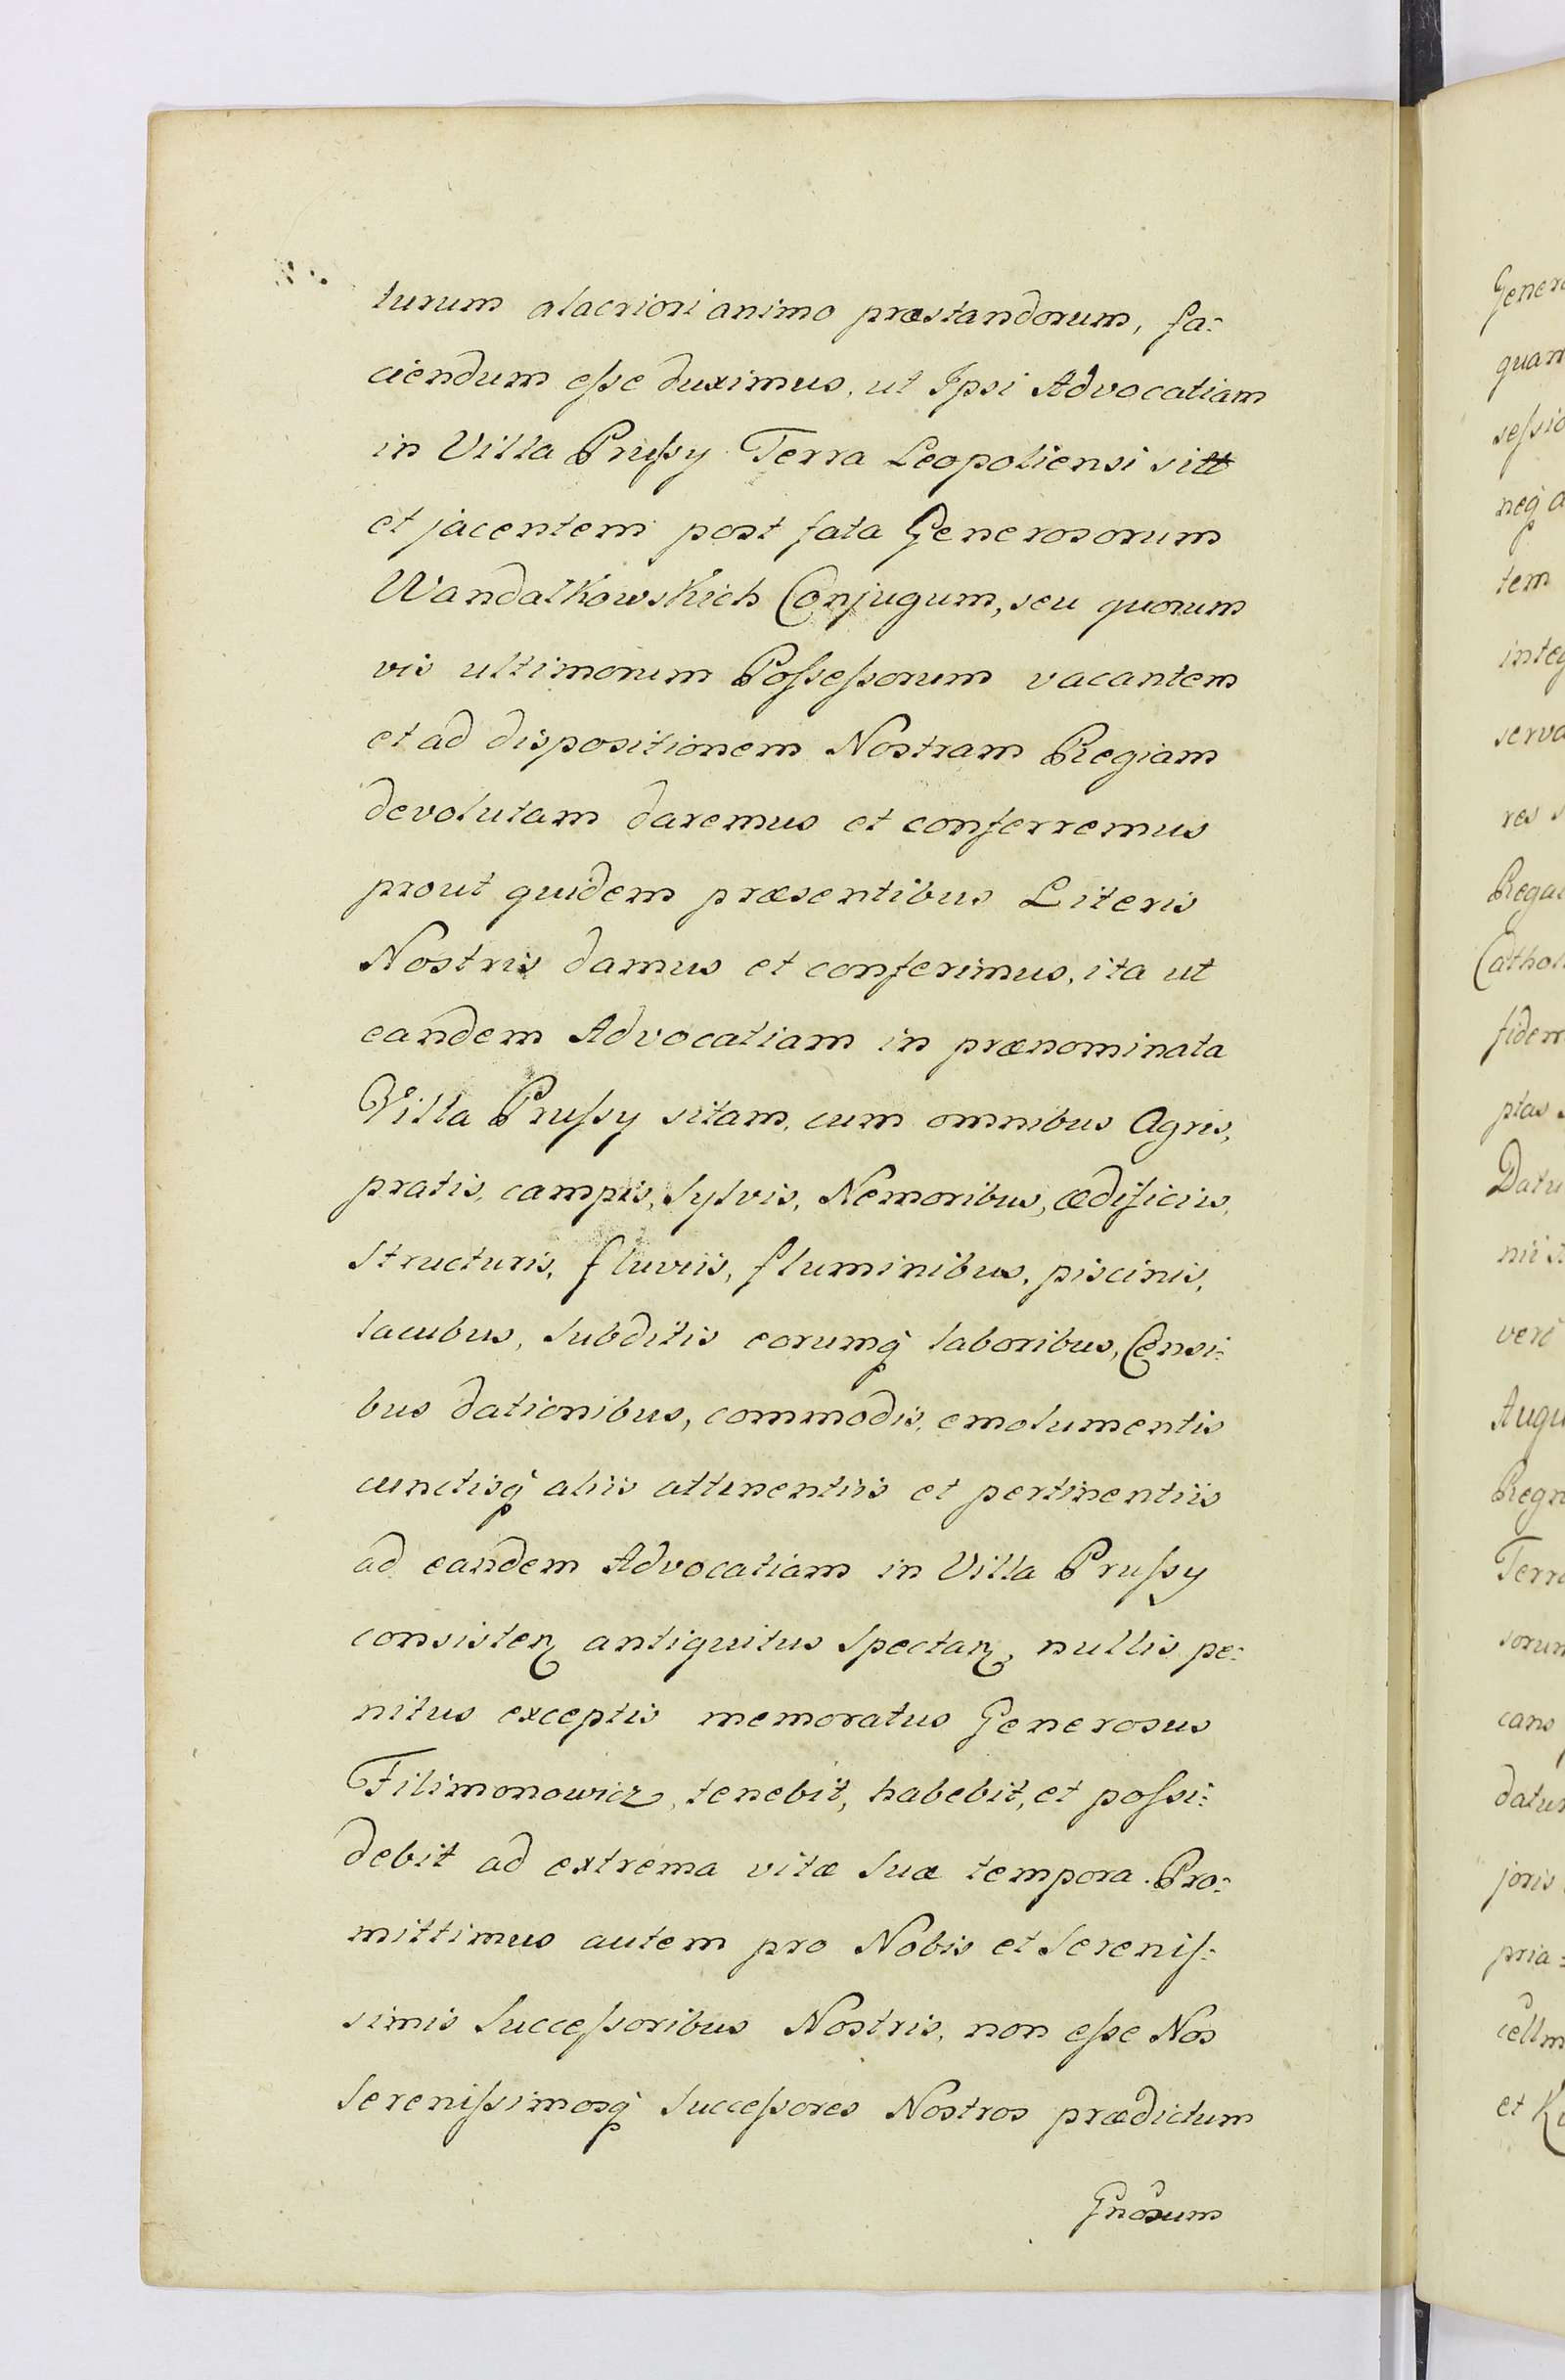 turum alacriori animo præstandorum, fa:
ciendum eſse duximus, ut Ipsi Advocatiam
in Villa Pruſsy Terra Leopoliensi sitt
et jacentem post fata Generosorum
Wandalkowskich Conjugum, seu quorum
vis ultimorum Poſseſsorum vacantem
et ad dispositionem Nostram Regiam
devolutam daremus et conferremus
prout quidem præsentibus Literis
Nostris damus et conferimus, ita ut
eandem Advocatiam in prænominata
Villa Pruſsy sitam, cum omnibus Agris,
pratis, campis, Sylvis, Nemoribus, ædificiis,
Structuris, fluviis, fluminibus, piscinis,
lacubus, Subditis eorumq̀ laboribus, Censi:
bus dationibus, commodis, emolumentis
cunctisq̀ aliis attinentiis et pertinentiis
ad eandem Advocatiam in Villa Pruſsy
consisteñ antiquitus Spectañ, nullis pe:
nitus exceptis memoratus Generosus
Filimonowicz, tenebit, habebit, et poſsi:
debit ad extrema vitæ Suæ tempora. Pro:
mittimus autem pro Nobis et Sereniſ:
simis Succeſsoribus Nostris, non eſse Nos
Sereniſsimosq̀ Succeſsores Nostros prædictum
Gnõsum
Gener
quam
seſsio
neq̀ a
tem
integ
serva
res s
Regal
Cathol
fidem
ptas
Datu
nii
veri
Augu
Regn
Terra
sorum
cans
datur
joris
pria:
cellm
et